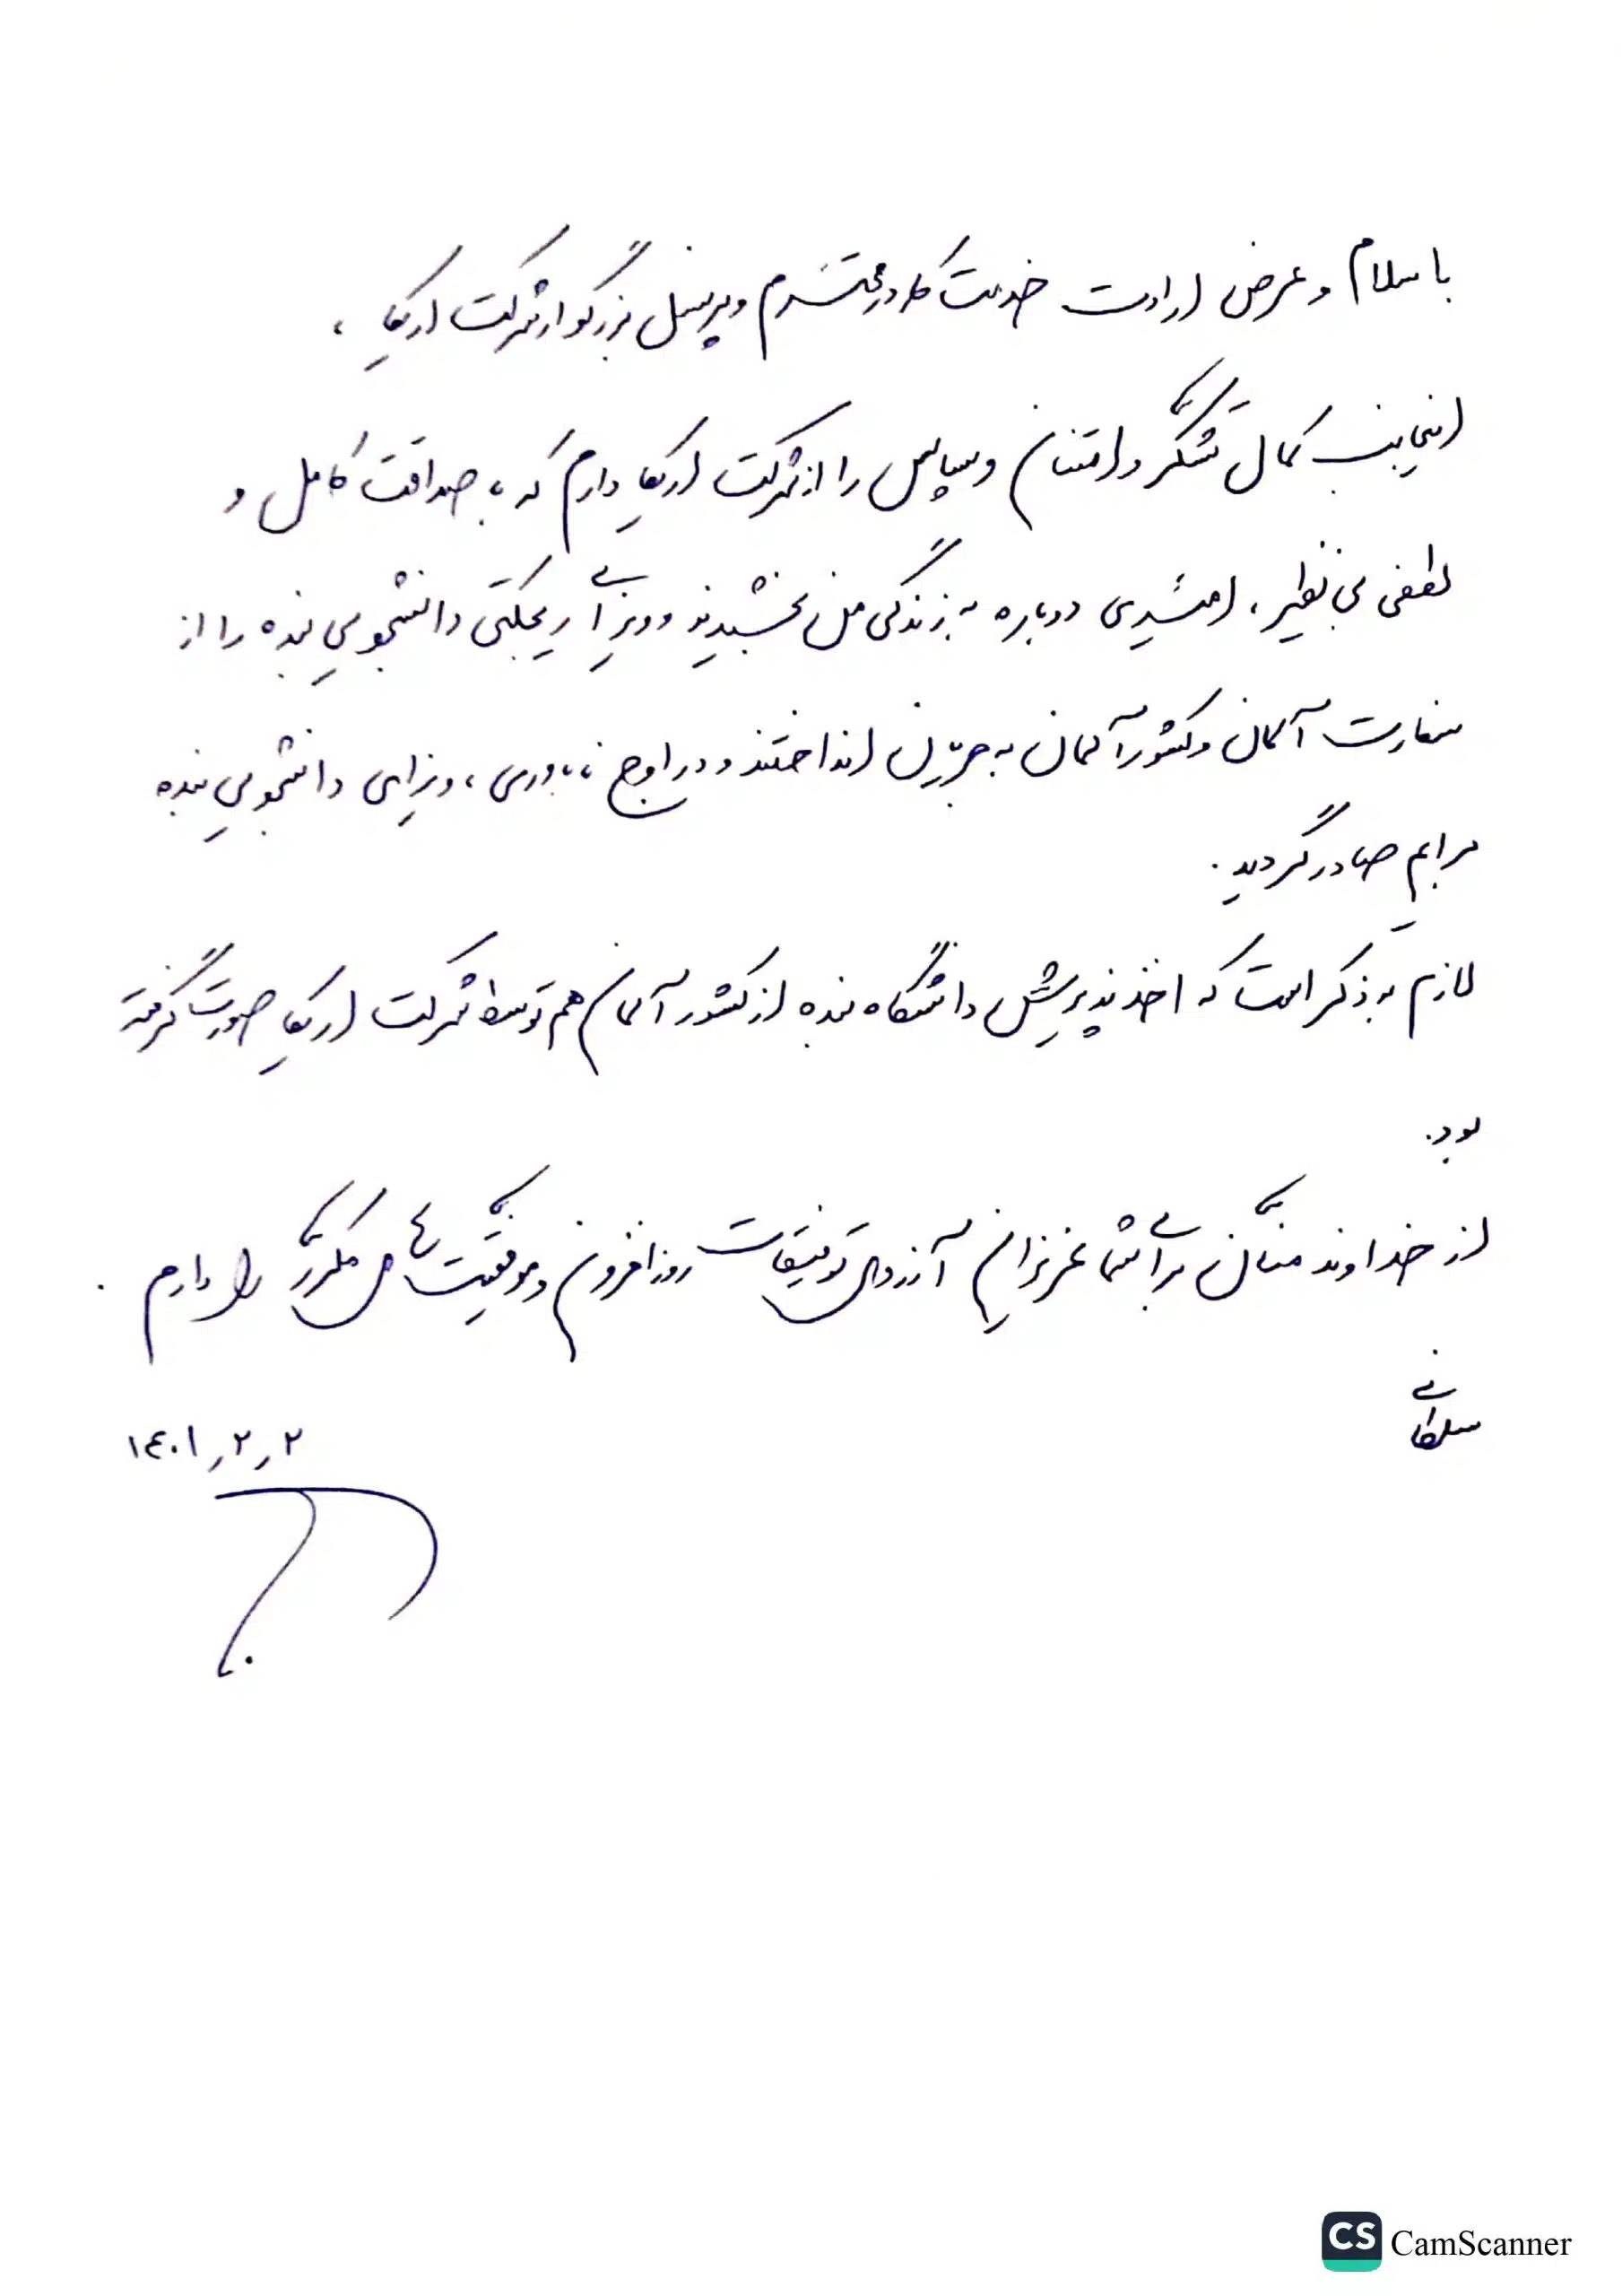 با سلام و عرض ارادت خدمت کادر محترم و پرسنل بزرگوار شرکت اریکا ،
اینجانب کمال تشکّر و امتنان و سپاس را از شرکت اریکا دارم که با صداقت کامل و
لطفی بی نظیر ، امّیدی دوباره به زندگی من بخشیدند و ویزای ریجکتی دانشجویی بنده را از
سفارت آلمان و کشور آلمان به جریان انداختند و در اوج ناباوری ، ویزای دانشجویی بنده
برایم صادر گردید .
لازم به ذکر است که اخذ پذیرش دانشگاه بنده از کشور آلمان هم توسط شرکت اریکا صورت گرفته
بود .
از خداوند منّان برای شما عزیزان آرزوی توفیقات روزافزون و موفقیّت های مکرّر را دارم .
سلطانی
۱٤۰۱٫۲٫۲
CS CamScanner